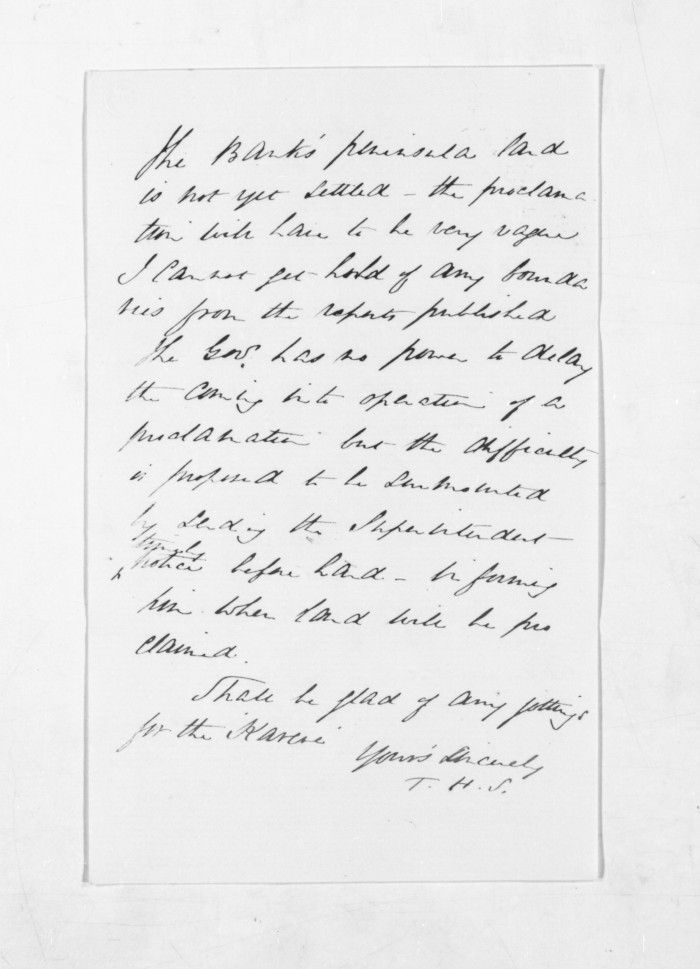 The Bank's peninsula land
is not yet settled - the proclama
tion will have to be very vague
I cannot get hold of any bounda
ries from the reports published
The Govr. has no power to delay
the coming into operation of a
proclamation but the difficulty
is proposed to be surmounted
by sending the Superintendent
timely
notice before hand - informing
him when land will be pro
claimed.
Shall be glad of any jottings
for the Karere
Yours sincerely
T. H. S.